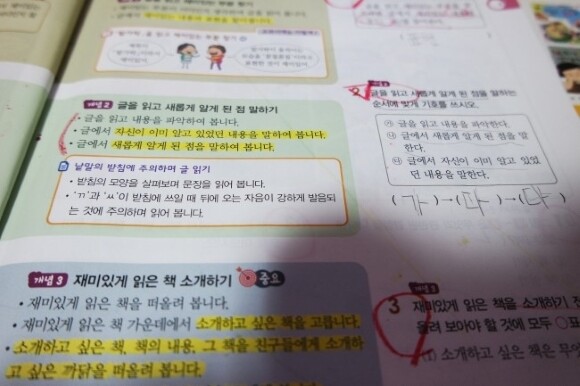 개념2 글을 읽고 새롭게 알게 된 점 말하기
• 글을 읽고 내용을 파악하여 봅니다.
• 글에서 자신이 이미 알고 있었던 내용을 말하여 봅니다.
• 글에서 새롭게 알게 된 점을 말하여 봅니다.
낱말의 받침에 주의하며 글 읽기
• 받침의 모양을 살펴보며 문장을 읽어 봅니다.
• 'ㄲ'과 'ㅆ'이 받침에 쓰일 때 뒤에 오는 자음이 강하게 발음되
는 것에 주의하며 읽어 봅니다.
개념3 재미있게 읽은 책 소개하기 중요
• 재미있게 읽은 책을 떠올려 봅니다.
• 재미있게 읽은 책 가운데에서 소개하고 싶은 책을 고릅니다.
• 소개하고 싶은 책, 책의 내용, 그 책을 친구들에게 소개하
고 싶은 까닭을 떠올려 봅니다.
2 글을 읽고 새롭게 알게 된 점을 말하는
순서에 맞게 기호를 쓰시오.
㉮ 글을 읽고 내용을 파악한다.
㉯ 글에서 새롭게 알게 된 점을 말
한다.
㉰ 글에서 자신이 이미 알고 있었
던 내용을 말한다.
(가)→(다)→(나)
개념3
3 재미있게 읽은 책을 소개하기
올려 보아야 할 것에 모두 ○표
(1) 소개하고 싶은 책은 무엇